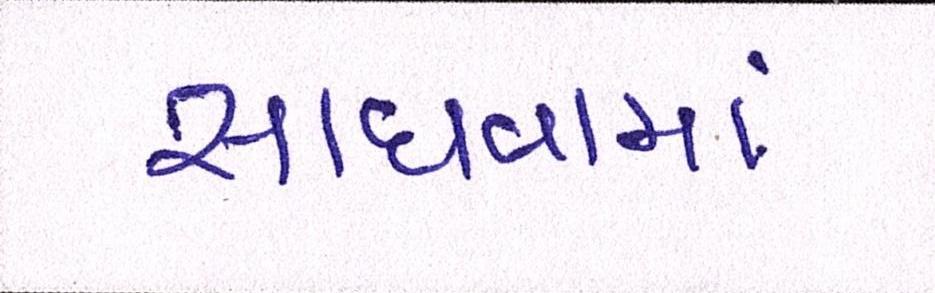 સાધવામાં